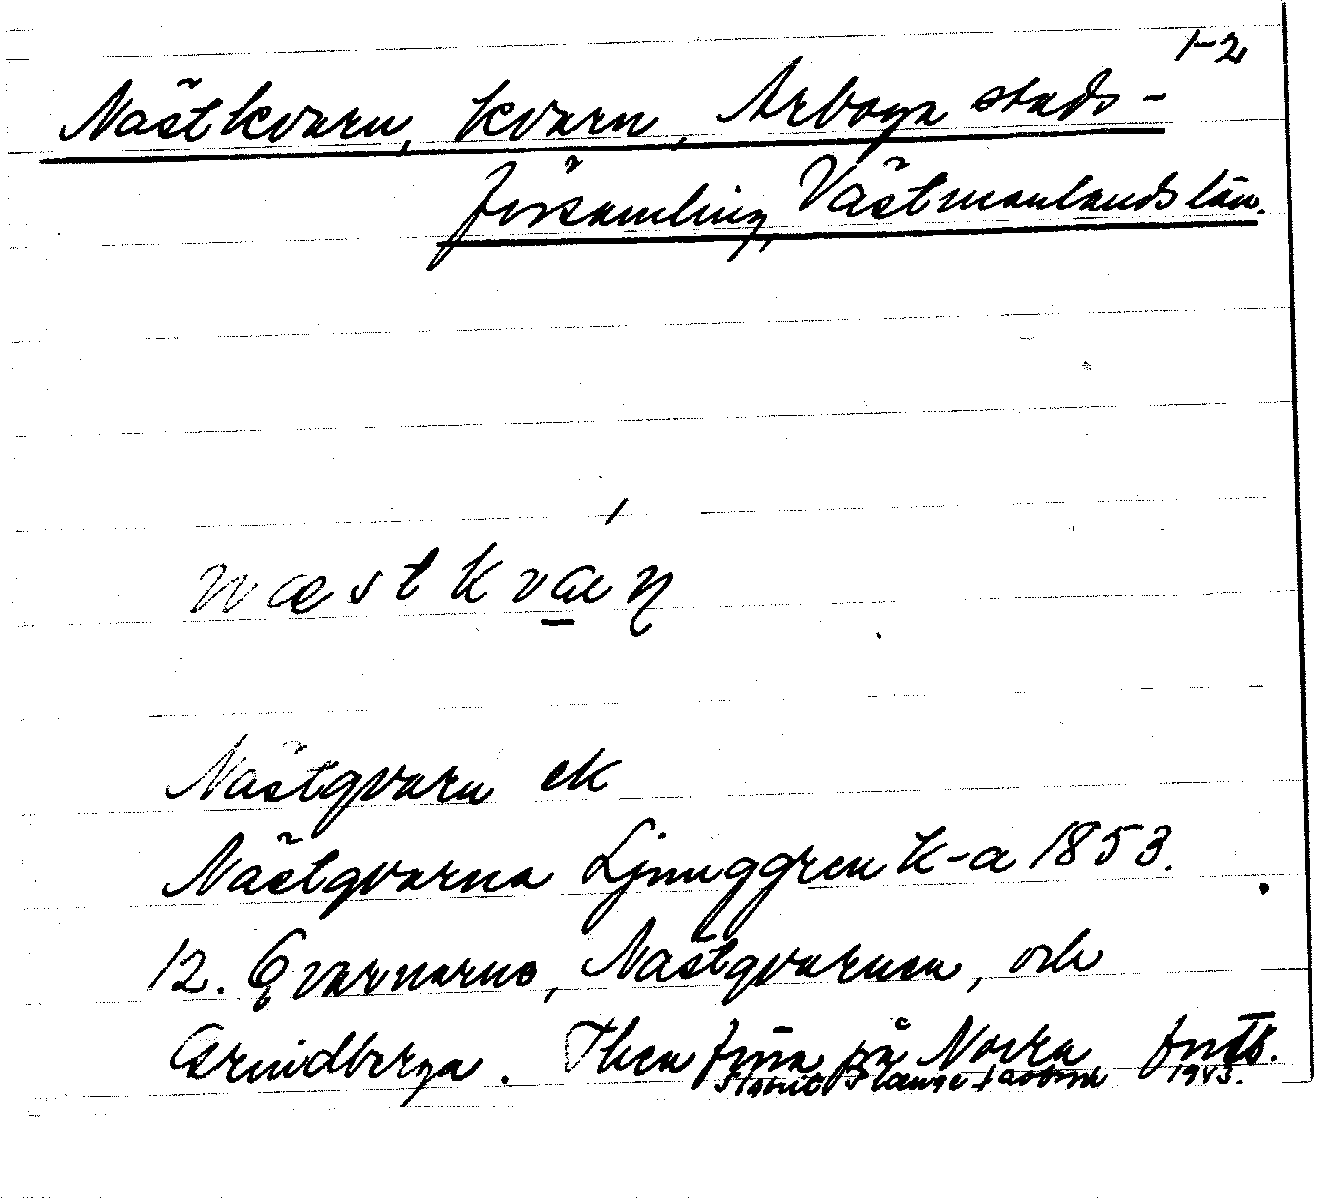 1-2
Nästkvarn, kvarn, Arboga stads-
församling, Västmanlands län.
n æ s t k v a n
Nästgvarn ek
Nästgvarna Ljunggren K-a 1853.
12. Qvarnarne, Nästgvarnen, och
Grindberga. Then förra på Norra forts.
1943.